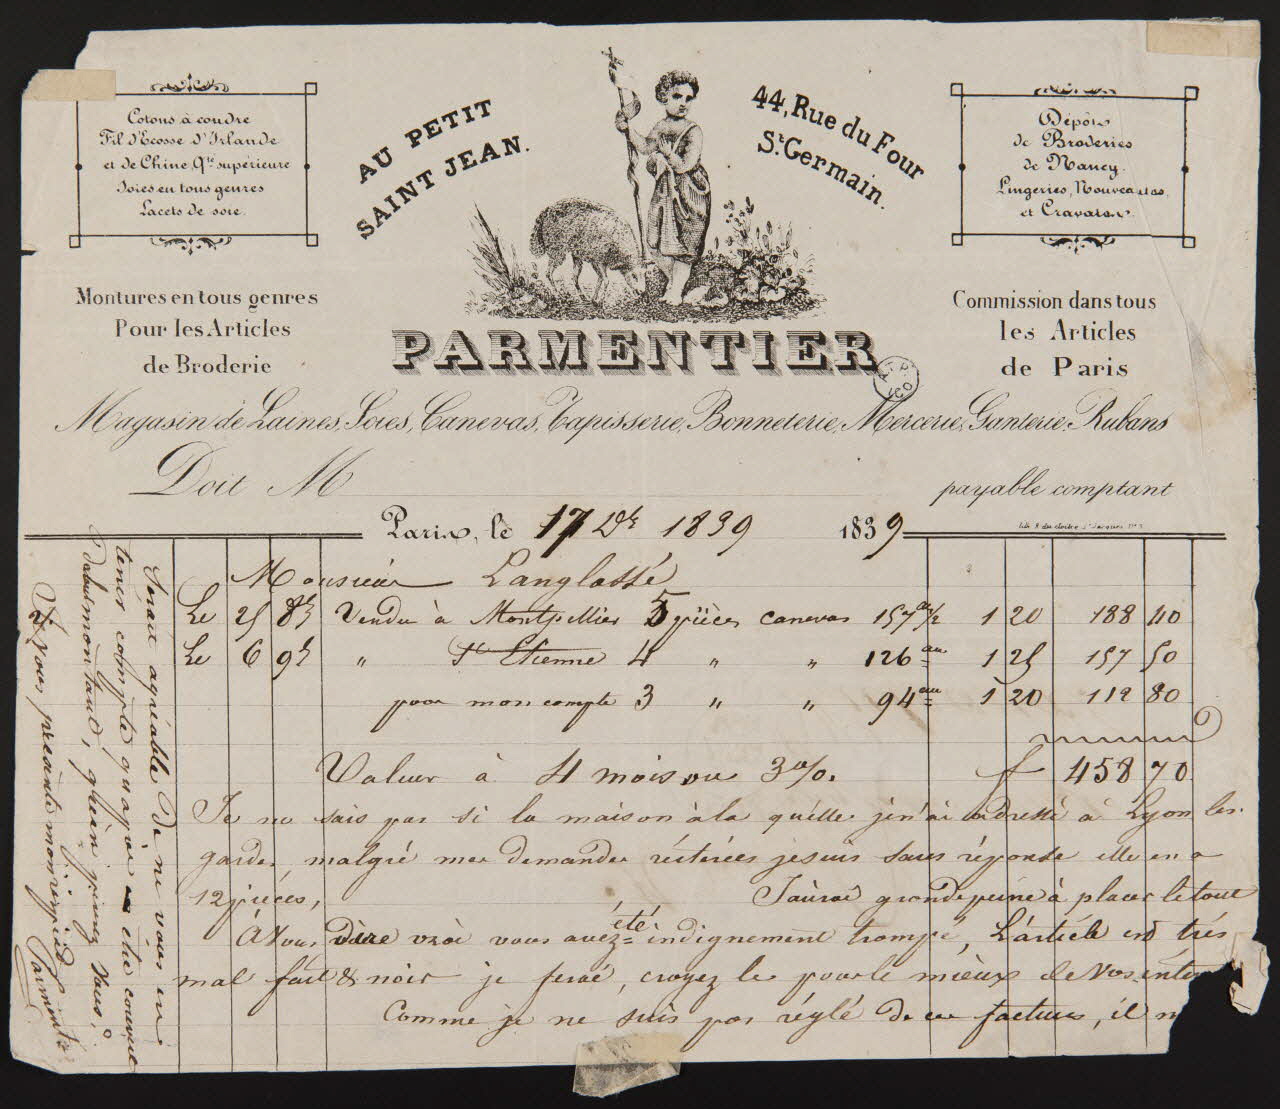 Cotons à coudre
Fil d'Ecosse d'Irlande
et de Chine, Qté supérieure
Soies en tous genres
Lacets de soie.
AU PETIT
SAINT JEAN.
44, Rue du Four
St. Germain.
Dépôts
de Broderies
de Nancy.
Lingeries, Nouveautés
et Cravates.
Montures en tous genres
Pour les Articles
de Broderie
Commission dans tous
les Articles
de Paris
PARMENTIER
Magasin de Laines, Soies, Canevas, Tapisserie, Bonneterie, Mercerie, Ganterie, Rubans
Doit M
payable comptant
Paris, le 17 Dbre 1839 1839
Monsieur Langlassé
Le 25 8bre Vendu à Montpellier 5 pièces canevas 157 au 1/2 1 20 188 40
Le 6 9bre " St Etienne 4 " " 126 au 1 25 157 50
pour mon compte 3 " " 94 au 1 20 112 80
Valeur à 4 mois ou 3%. f 458 70
Je ne sais pas si la maison à la quélle j'en ai adréssé à Lyon les
gardes malgré mes demandes réiterées je suis sans réponse elle en a
12 pièces, J'aurai grande peine à placer le tout
à vous dire vrai vous avez été indignement trompé, L'article est très
mal fait & noir je ferai, croyez le pour le mieux de vos
Comme je ne suis pas réglé de ces factures, il
Serait agréable de ne vous en
tenir compte qu'après être couvert
du montant,
Parmentier